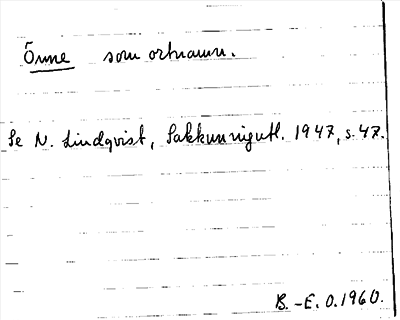 Önne som ortnamn.
Se N. Lindqvist, Sakkunnigutl. 1947, s. 47.
B.-E. O. 1960.